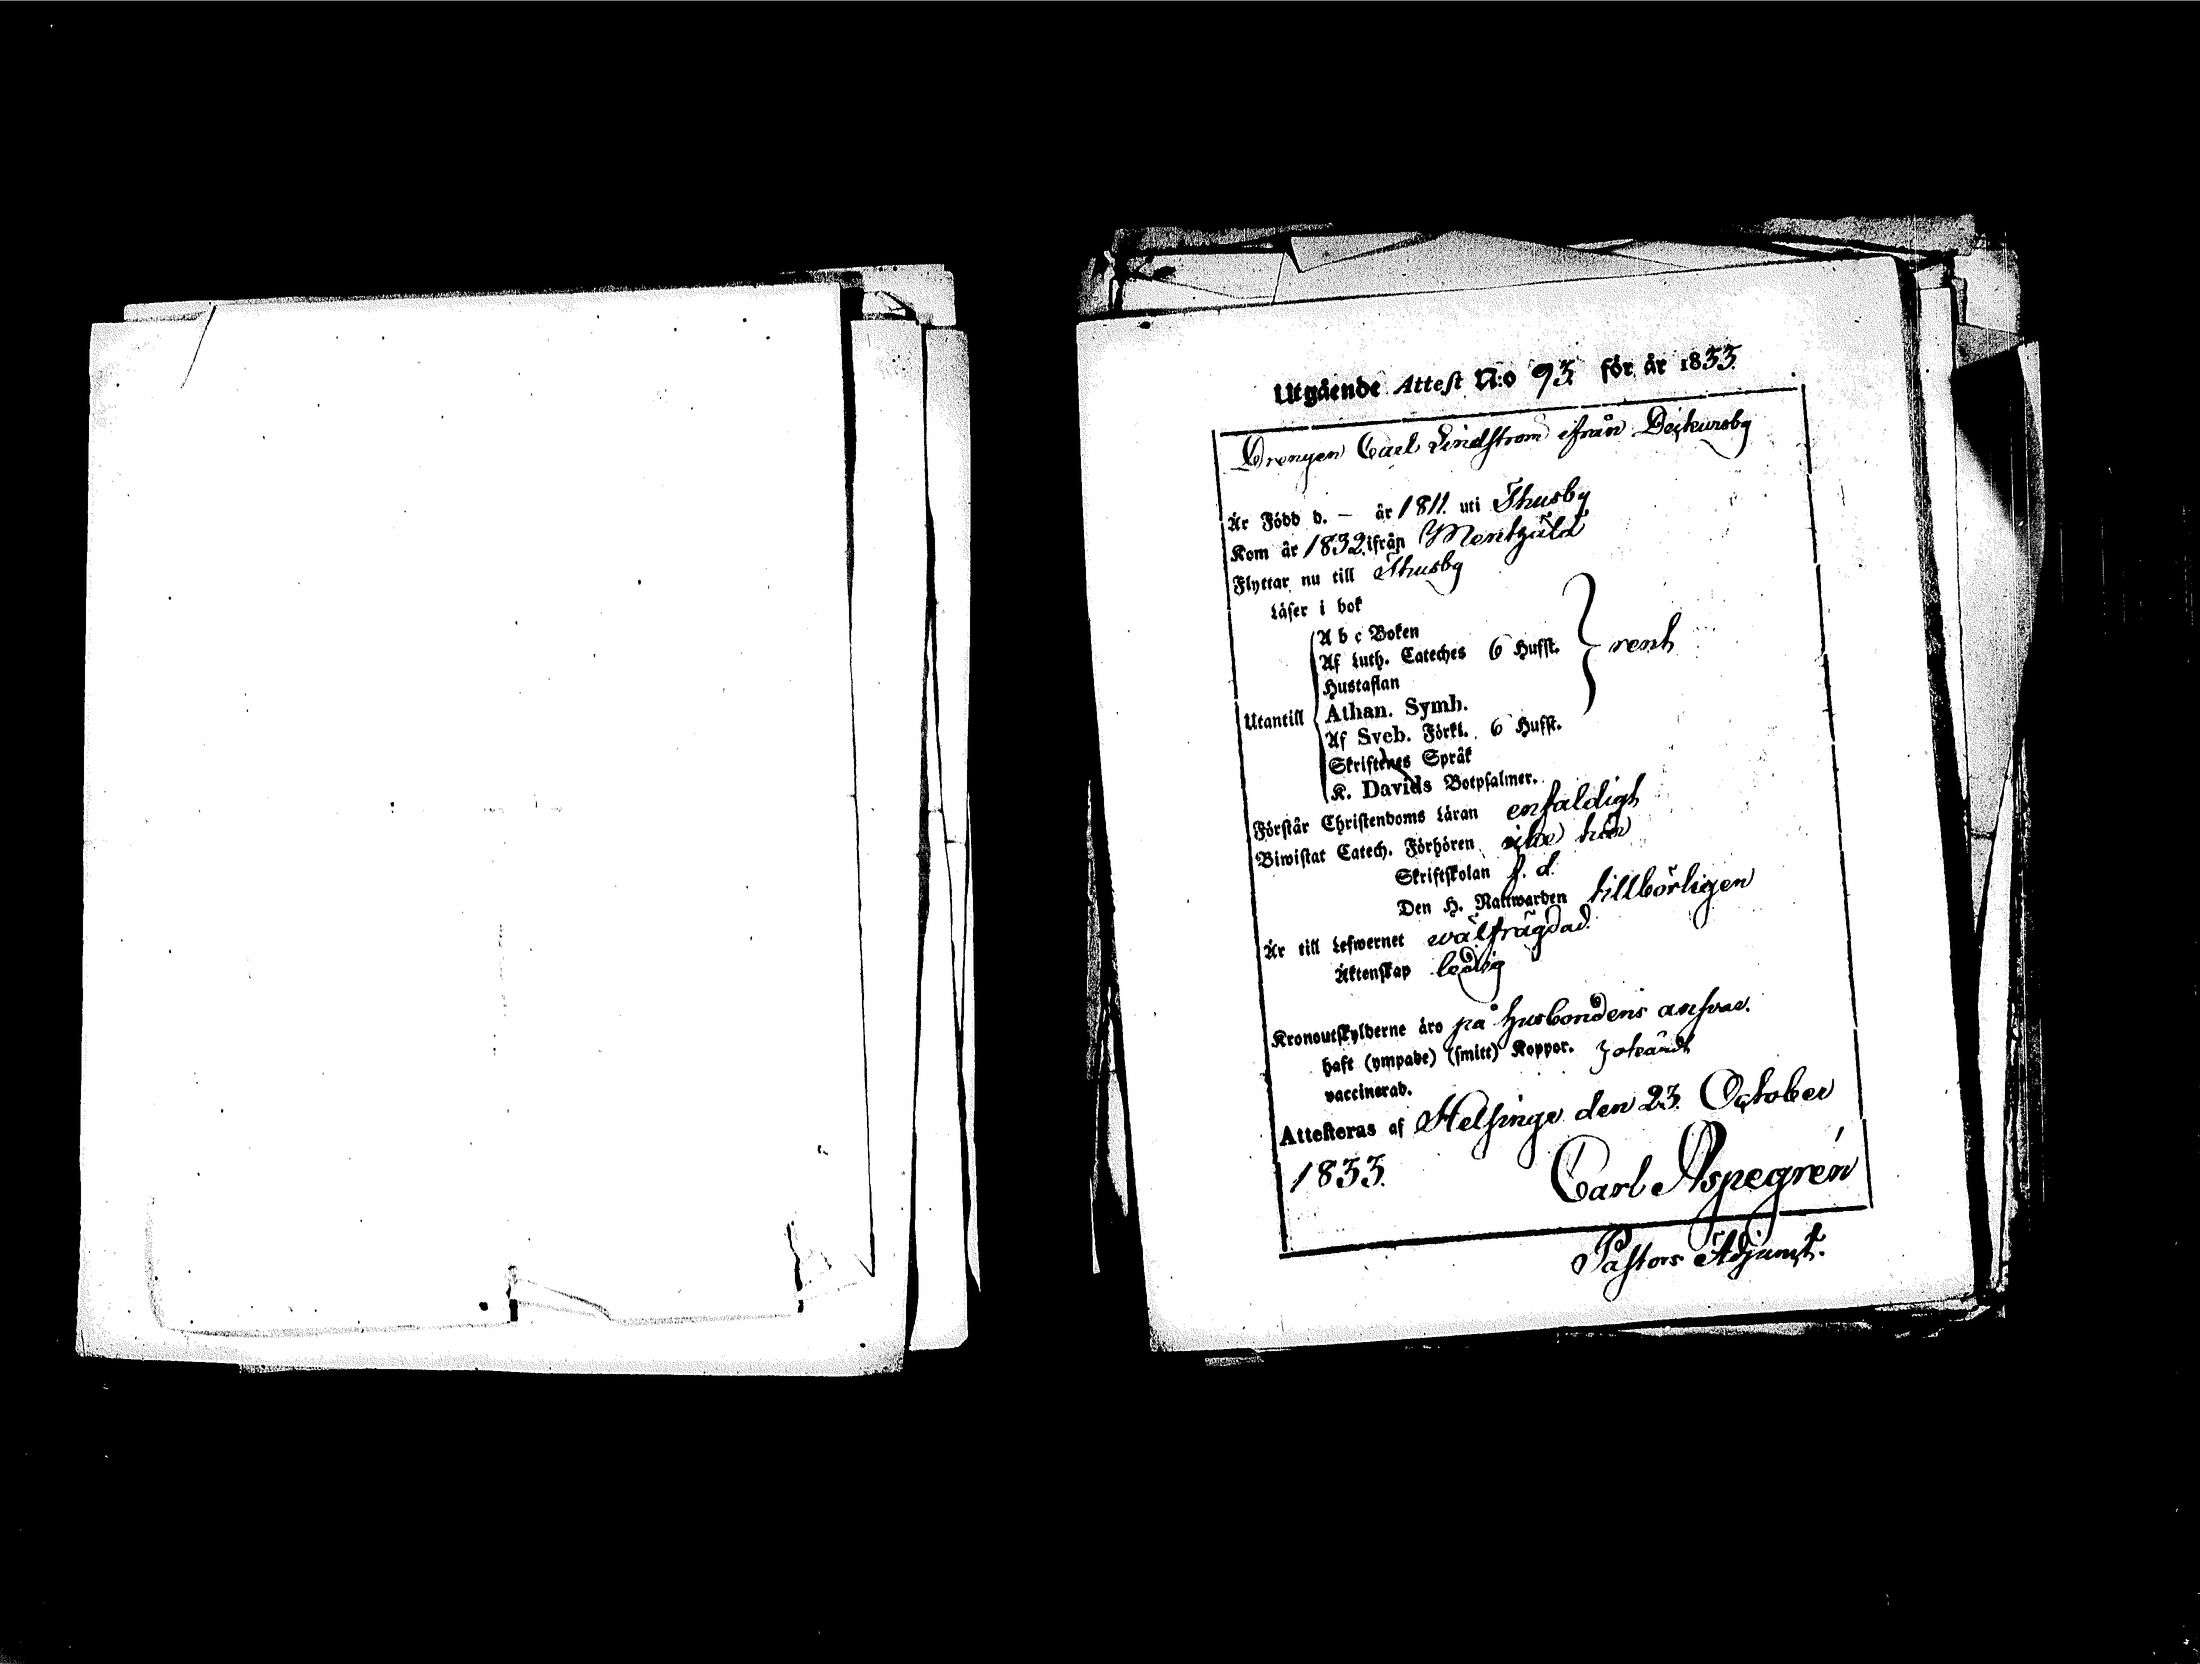 Utgående Attest N:o 93. för år 1833.
Drengen Carl Lindstrom ifrån Dejkursby
Är Född d. – år 1811. uti Thusby
Kom år 1832. ifrån Mentzälä
Flyttar nu till Thusby
Läser i bok
A b c Boken
Af Luth. Cateches 6 Hufst. } rent
Hustaflan
Utantill Athan. Symb.
Af Sveb. Förkl. 6 Hufst.
Skriftenes Språk
K. Davids Botpsalmer.
Förstår Christendoms Läran enfaldigt
Biwistat Catech. Förhören icke här
Skriftskolan f. d.
Den H. Nattwarden tillbörligen
Är till Lefwernet wälfrägdad.
Äktenskap ledig
Kronoutskylderne äro på Husbondens answar.
haft (ympade) (smitt) Koppor.
vaccinerad.
Attesteras af Helsinge den 23. October
1833. Carl Aspegrén
Pastors Adjunct.